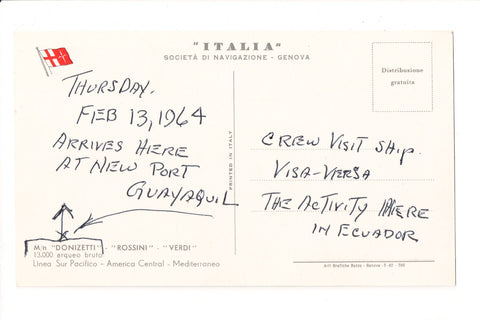 "ITALIA"
SOCIETÀ DI NAVIGAZIONE - GENOVA
Distribuzione
gratuita
THURSDAY.
FEB 13, 1964
ARRIVES HERE
AT NEW PORT
GUAYAQUIL
M/n "DONIZETTI" - "ROSSINI" - "VERDI"
13.000 erqueo bruto
Linea Sur Pacifico - America Central - Mediterraneo
PRINTED IN ITALY
CREW VISIT SHIP.
VISA-VERSA
THE ACTIVITY HERE
IN ECUADOR